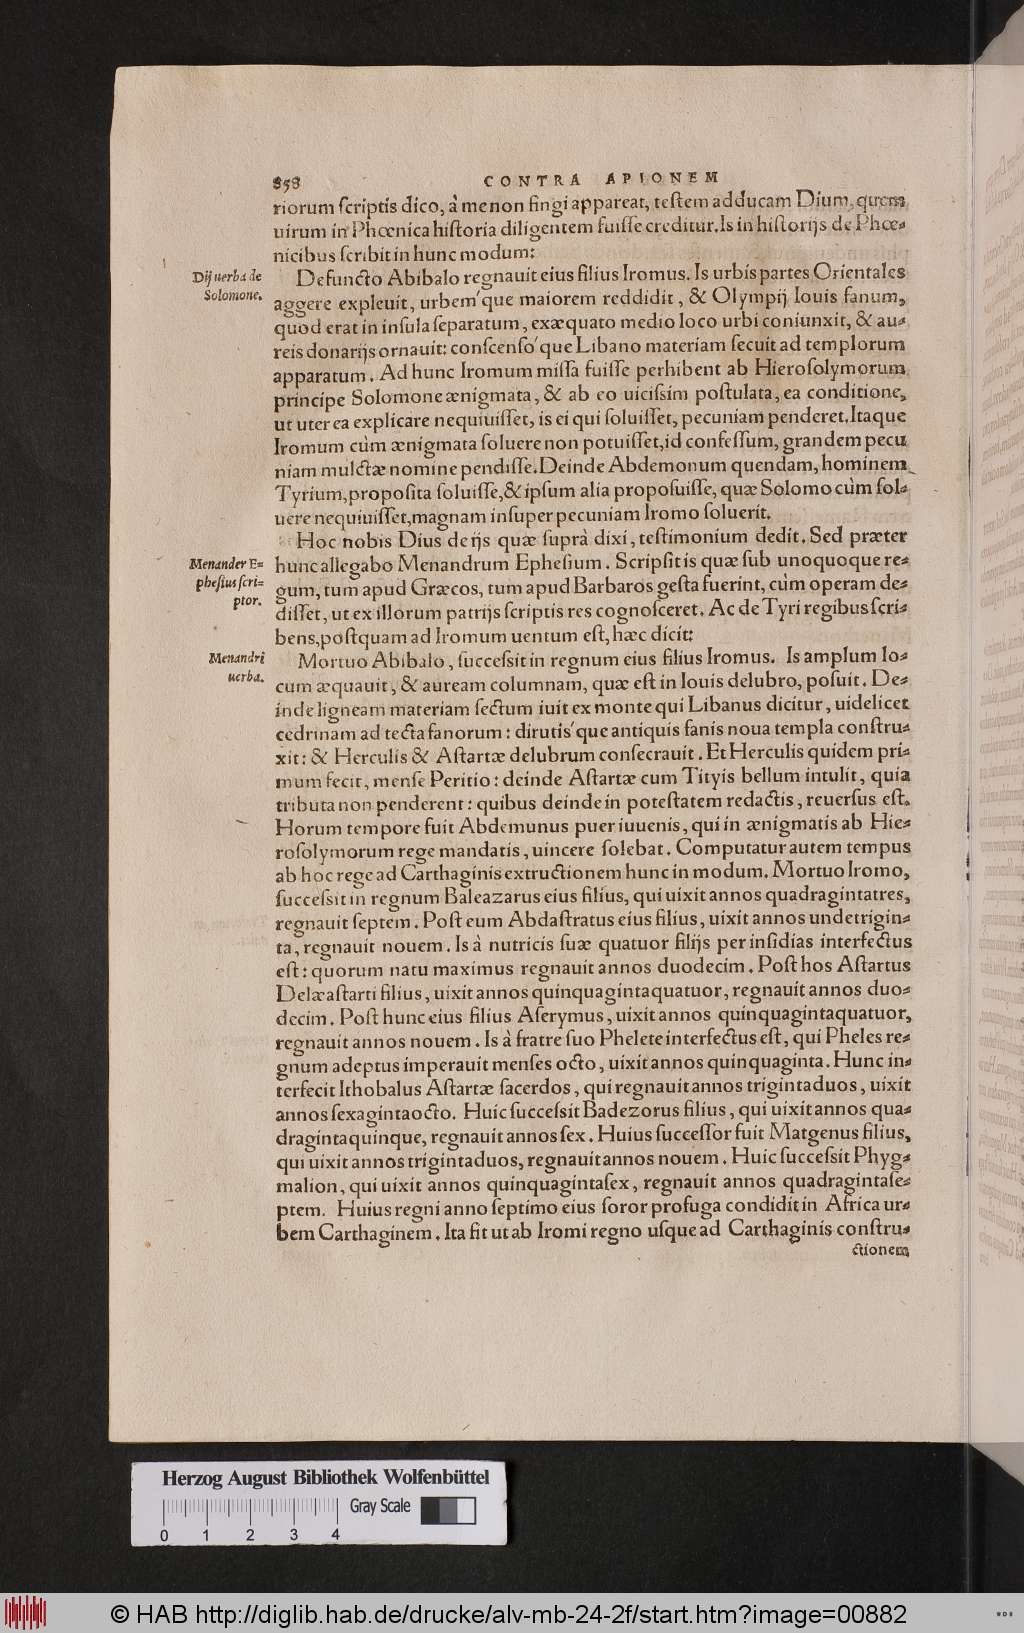 858 CONTRA APIONEM
riorum ſcriptis dico, à me non fingi appareat, teſtem adducam Dium, quem
uirum in Phœnica hiſtoria diligentem fuiſſe creditur. Is in hiſtorijs de Phœ-
nicibus ſcribit in hunc modum:
Dij uerba de
Solomone.
Defuncto Abibalo regnauit eius filius Iromus. Is urbis partes Orientales
aggere expleuit, urbem´que maiorem reddidit, & Olympij Iouis fanum,
quod erat in inſula ſeparatum, exæquato medio loco urbi coniunxit, & au-
reis donarijs ornauit: conſcenſo´que Libano materiam ſecuit ad templorum
apparatum. Ad hunc Iromum miſſa fuiſſe perhibent ab Hieroſolymorum
principe Solomone ænigmata, & ab eo uiciſsim poſtulata, ea conditione,
ut uter ea explicare nequiuiſſet, is ei qui ſoluiſſet, pecuniam penderet. Itaque
Iromum cùm ænigmata ſoluere non potuiſſet, id confeſſum, grandem pecu
niam mulctæ nomine pendiſſe. Deinde Abdemonum quendam, hominem
Tyrium, propoſita ſoluiſſe, & ipſum alia propoſuiſſe, quæ Solomo cùm ſol-
uere nequiuiſſet, magnam inſuper pecuniam Iromo ſoluerit.
Hoc nobis Dius de ijs quæ ſuprà dixi, teſtimonium dedit. Sed præter
Menander E-
pheſius ſcri-
ptor.
hunc allegabo Menandrum Epheſium. Scripſit is quæ ſub unoquoque re-
gum, tum apud Græcos, tum apud Barbaros geſta fuerint, cùm operam de-
diſſet, ut ex illorum patrijs ſcriptis res cognoſceret. Ac de Tyri regibus ſcri-
bens, poſtquam ad Iromum uentum eſt, hæc dicit:
Menandri
uerba.
Mortuo Abibalo, ſucceſsit in regnum eius filius Iromus. Is amplum lo-
cum æquauit, & auream columnam, quæ eſt in Iouis delubro, poſuit. De-
inde ligneam materiam ſectum iuit ex monte qui Libanus dicitur, uidelicet
cedrinam ad tecta fanorum: dirutis´que antiquis fanis noua templa conſtru-
xit: & Herculis & Aſtartæ delubrum conſecrauit. Et Herculis quidem pri-
mum fecit, menſe Peritio: deinde Aſtartæ cum Tityis bellum intulit, quia
tributa non penderent: quibus deinde in poteſtatem redactis, reuerſus eſt.
Horum tempore fuit Abdemunus puer iuuenis, qui in ænigmatis ab Hie-
roſolymorum rege mandatis, uincere ſolebat. Computatur autem tempus
ab hoc rege ad Carthaginis extructionem hunc in modum. Mortuo Iromo,
ſucceſsit in regnum Baleazarus eius filius, qui uixit annos quadragintatres,
regnauit ſeptem. Poſt eum Abdaſtratus eius filius, uixit annos undetrigin-
ta, regnauit nouem. Is à nutricis ſuæ quatuor filijs per inſidias interfectus
eſt: quorum natu maximus regnauit annos duodecim. Poſt hos Aſtartus
Delæaſtarti filius, uixit annos quinquagintaquatuor, regnauit annos duo-
decim. Poſt hunc eius filius Aſerymus, uixit annos quinquagintaquatuor,
regnauit annos nouem. Is à fratre ſuo Phelete interfectus eſt, qui Pheles re-
gnum adeptus imperauit menſes octo, uixit annos quinquaginta. Hunc in-
terfecit Ithobalus Aſtartæ ſacerdos, qui regnauit annos trigintaduos, uixit
annos ſexagintaocto. Huic ſucceſsit Badezorus filius, qui uixit annos qua-
dragintaquinque, regnauit annos ſex. Huius ſucceſſor fuit Matgenus filius,
qui uixit annos trigintaduos, regnauit annos nouem. Huic ſucceſsit Phyg-
malion, qui uixit annos quinquagintaſex, regnauit annos quadragintaſe-
ptem. Huius regni anno ſeptimo eius ſoror profuga condidit in Africa ur-
bem Carthaginem. Ita fit ut ab Iromi regno uſque ad Carthaginis conſtru-
ctionem
Herzog August Bibliothek Wolfenbüttel
Gray Scale
0 1 2 3 4
© HAB http://diglib.hab.de/drucke/alv-mb-24-2f/start.htm?image=00882